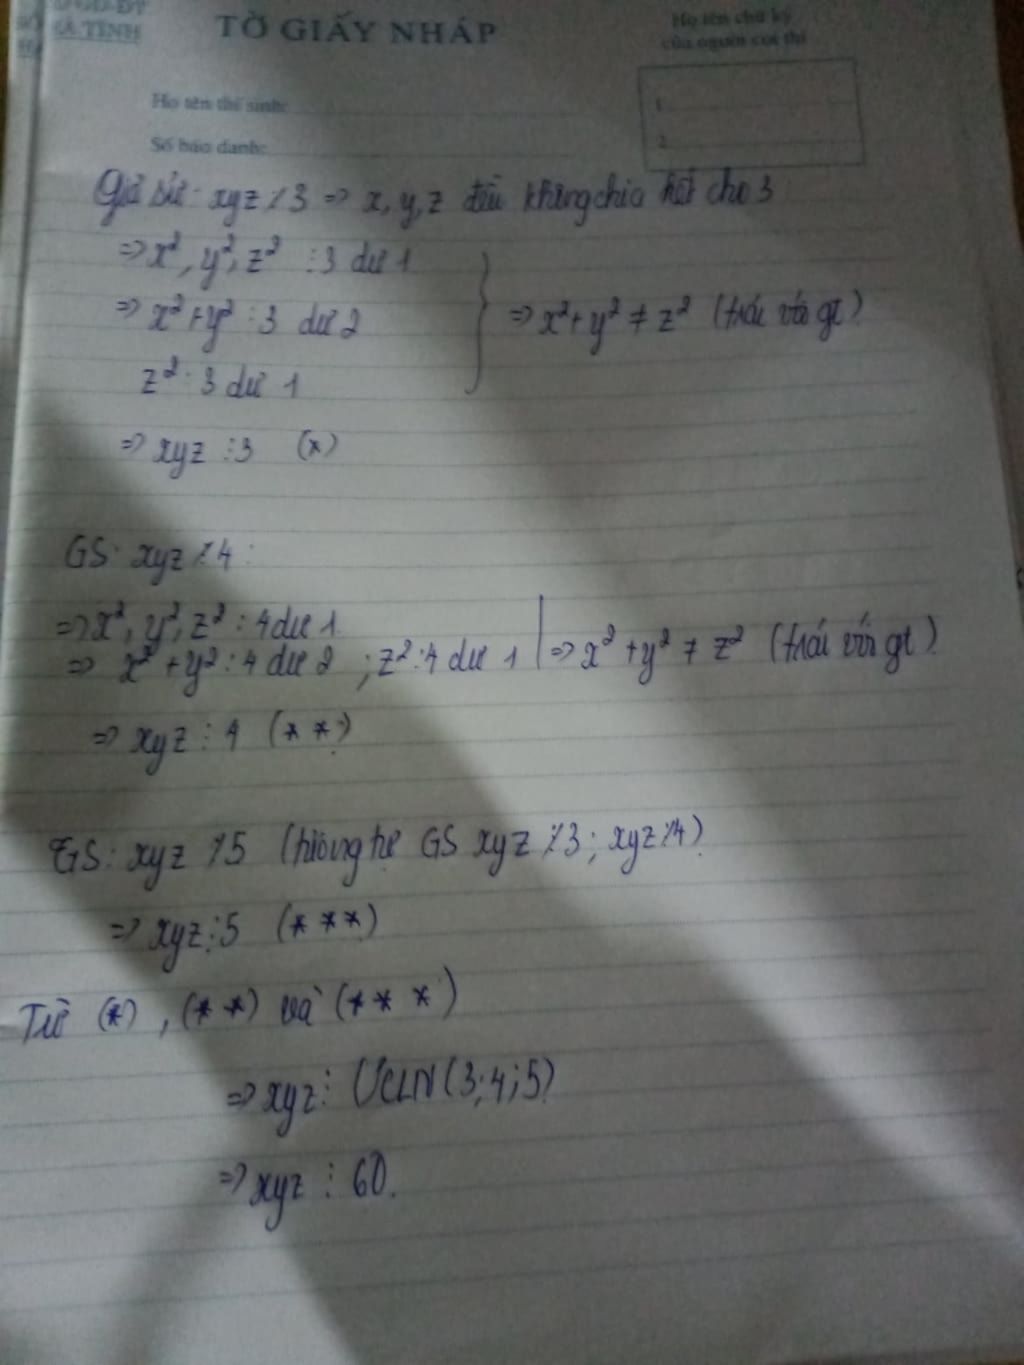 GD-ĐT
HÀ TĨNH
TỜ GIẤY NHÁP
Họ tên chữ ký
của người coi thi
Họ tên thí sinh:
Số báo danh:
1
2
Giả sử: xyz ⋮̸ 3 => x, y, z đều không chia hết cho 3
=> x², y², z² : 3 dư 1
=> x² + y² : 3 dư 2
z² : 3 dư 1
=> x² + y² ≠ z² (trái với gt)
=> xyz ⋮ 3 (*)
GS: xyz ⋮̸ 4 :
=> x², y², z² : 4 dư 1
=> x² + y² : 4 dư 2 ; z² : 4 dư 1 | => x² + y² ≠ z² (trái với gt)
=> xyz ⋮ 4 (**)
GS: xyz ⋮̸ 5 (tương tự GS xyz ⋮̸ 3 ; xyz ⋮̸ 4)
=> xyz ⋮ 5 (***)
Từ (*), (**) và (***)
=> xyz ⋮ ƯCLN(3;4;5)
=> xyz ⋮ 60.